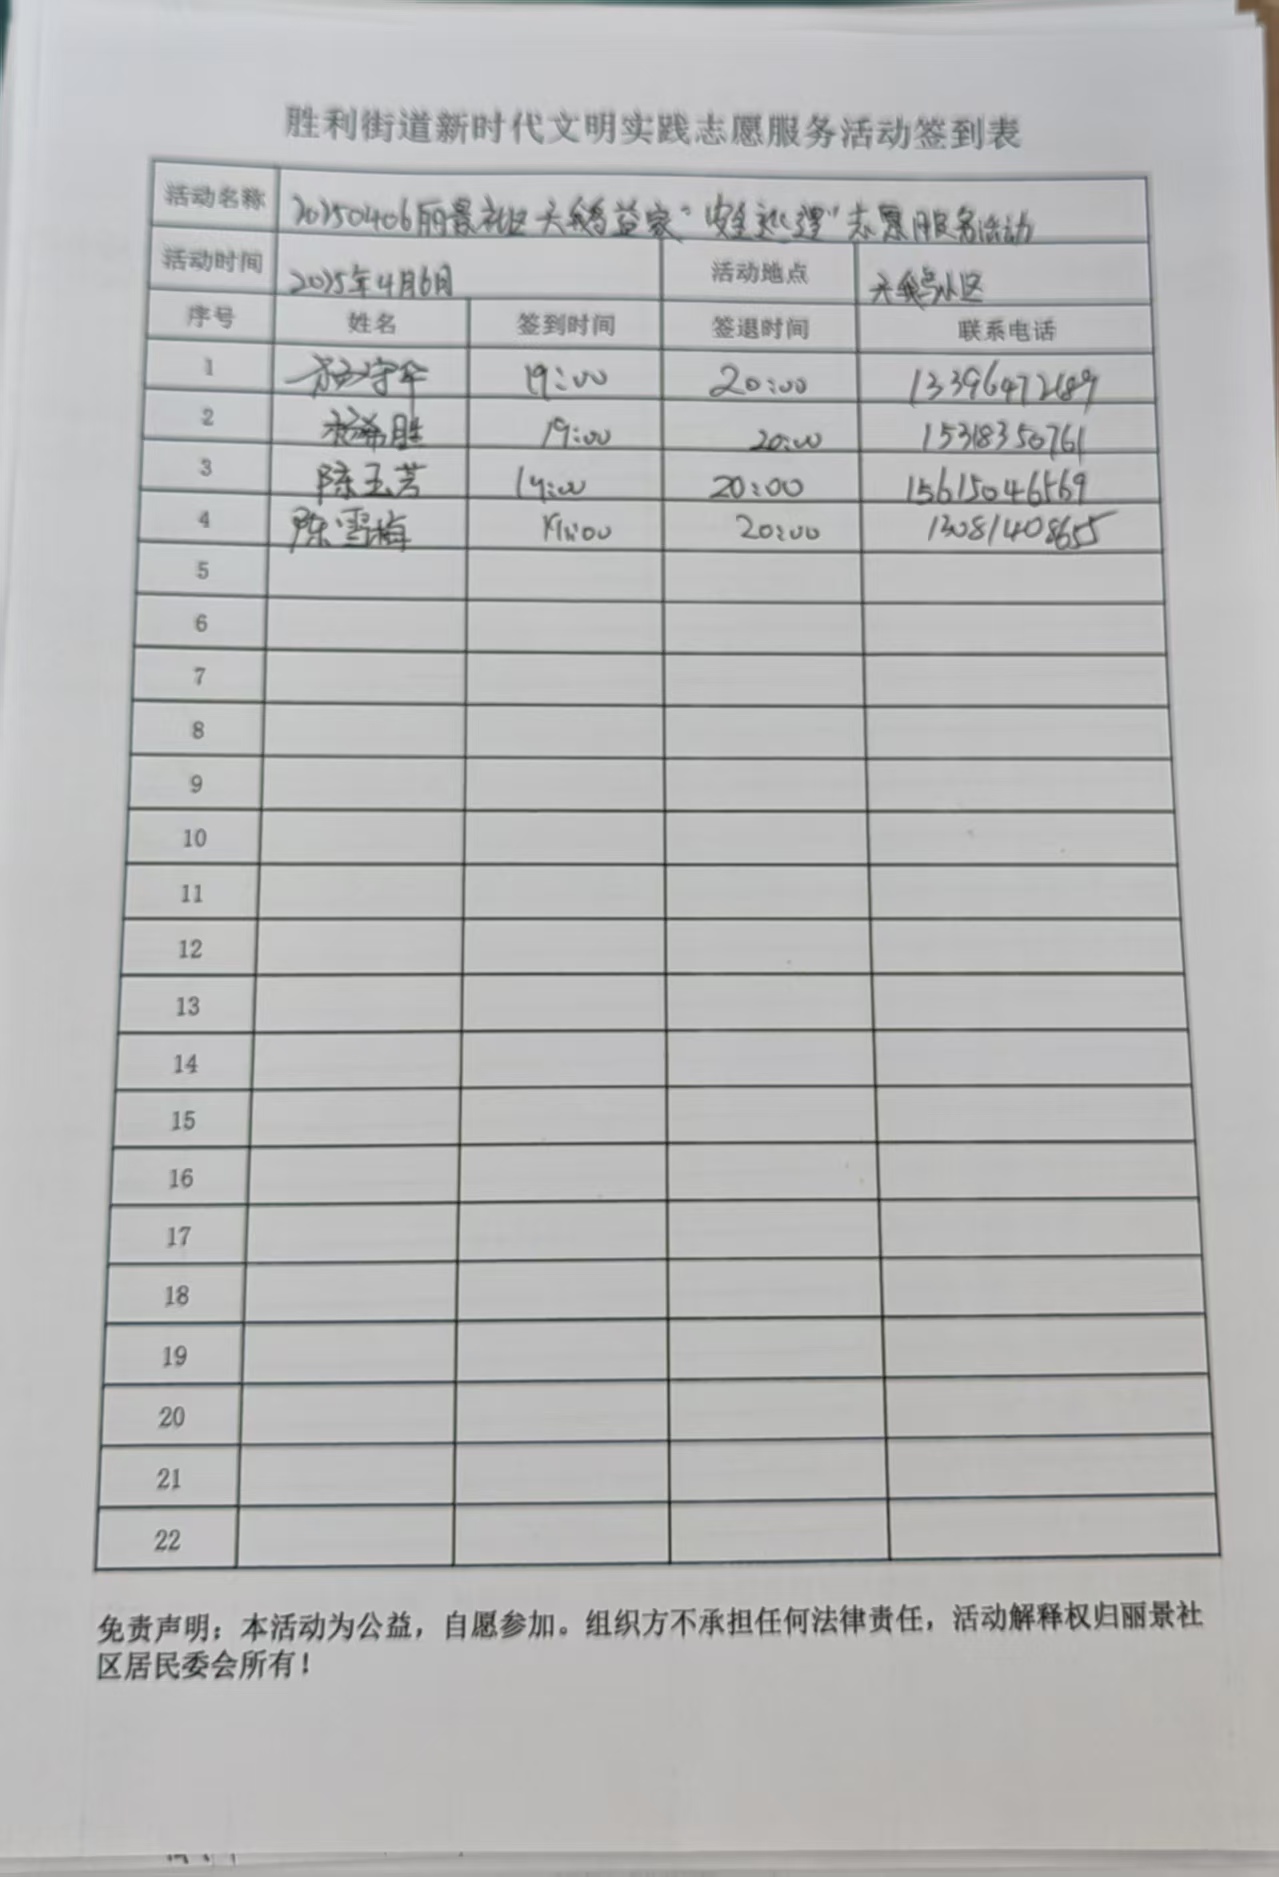 胜利街道新时代文明实践志愿服务活动签到表
活动名称 20250406丽景社区天鹅益家“安全巡逻”志愿服务活动
活动时间 2025年4月6日 活动地点 天鹅小区
序号 姓名 签到时间 签退时间 联系电话
1 19:00 20:00 13396472689
2 杨希胜 19:00 20:00 15318350761
3 陈玉芳 19:00 20:00 15615046569
4 陈雪梅 19:00 20:00 13081408655
5
6
7
8
9
10
11
12
13
14
15
16
17
18
19
20
21
22
免责声明：本活动为公益，自愿参加。组织方不承担任何法律责任，活动解释权归丽景社
区居民委会所有！